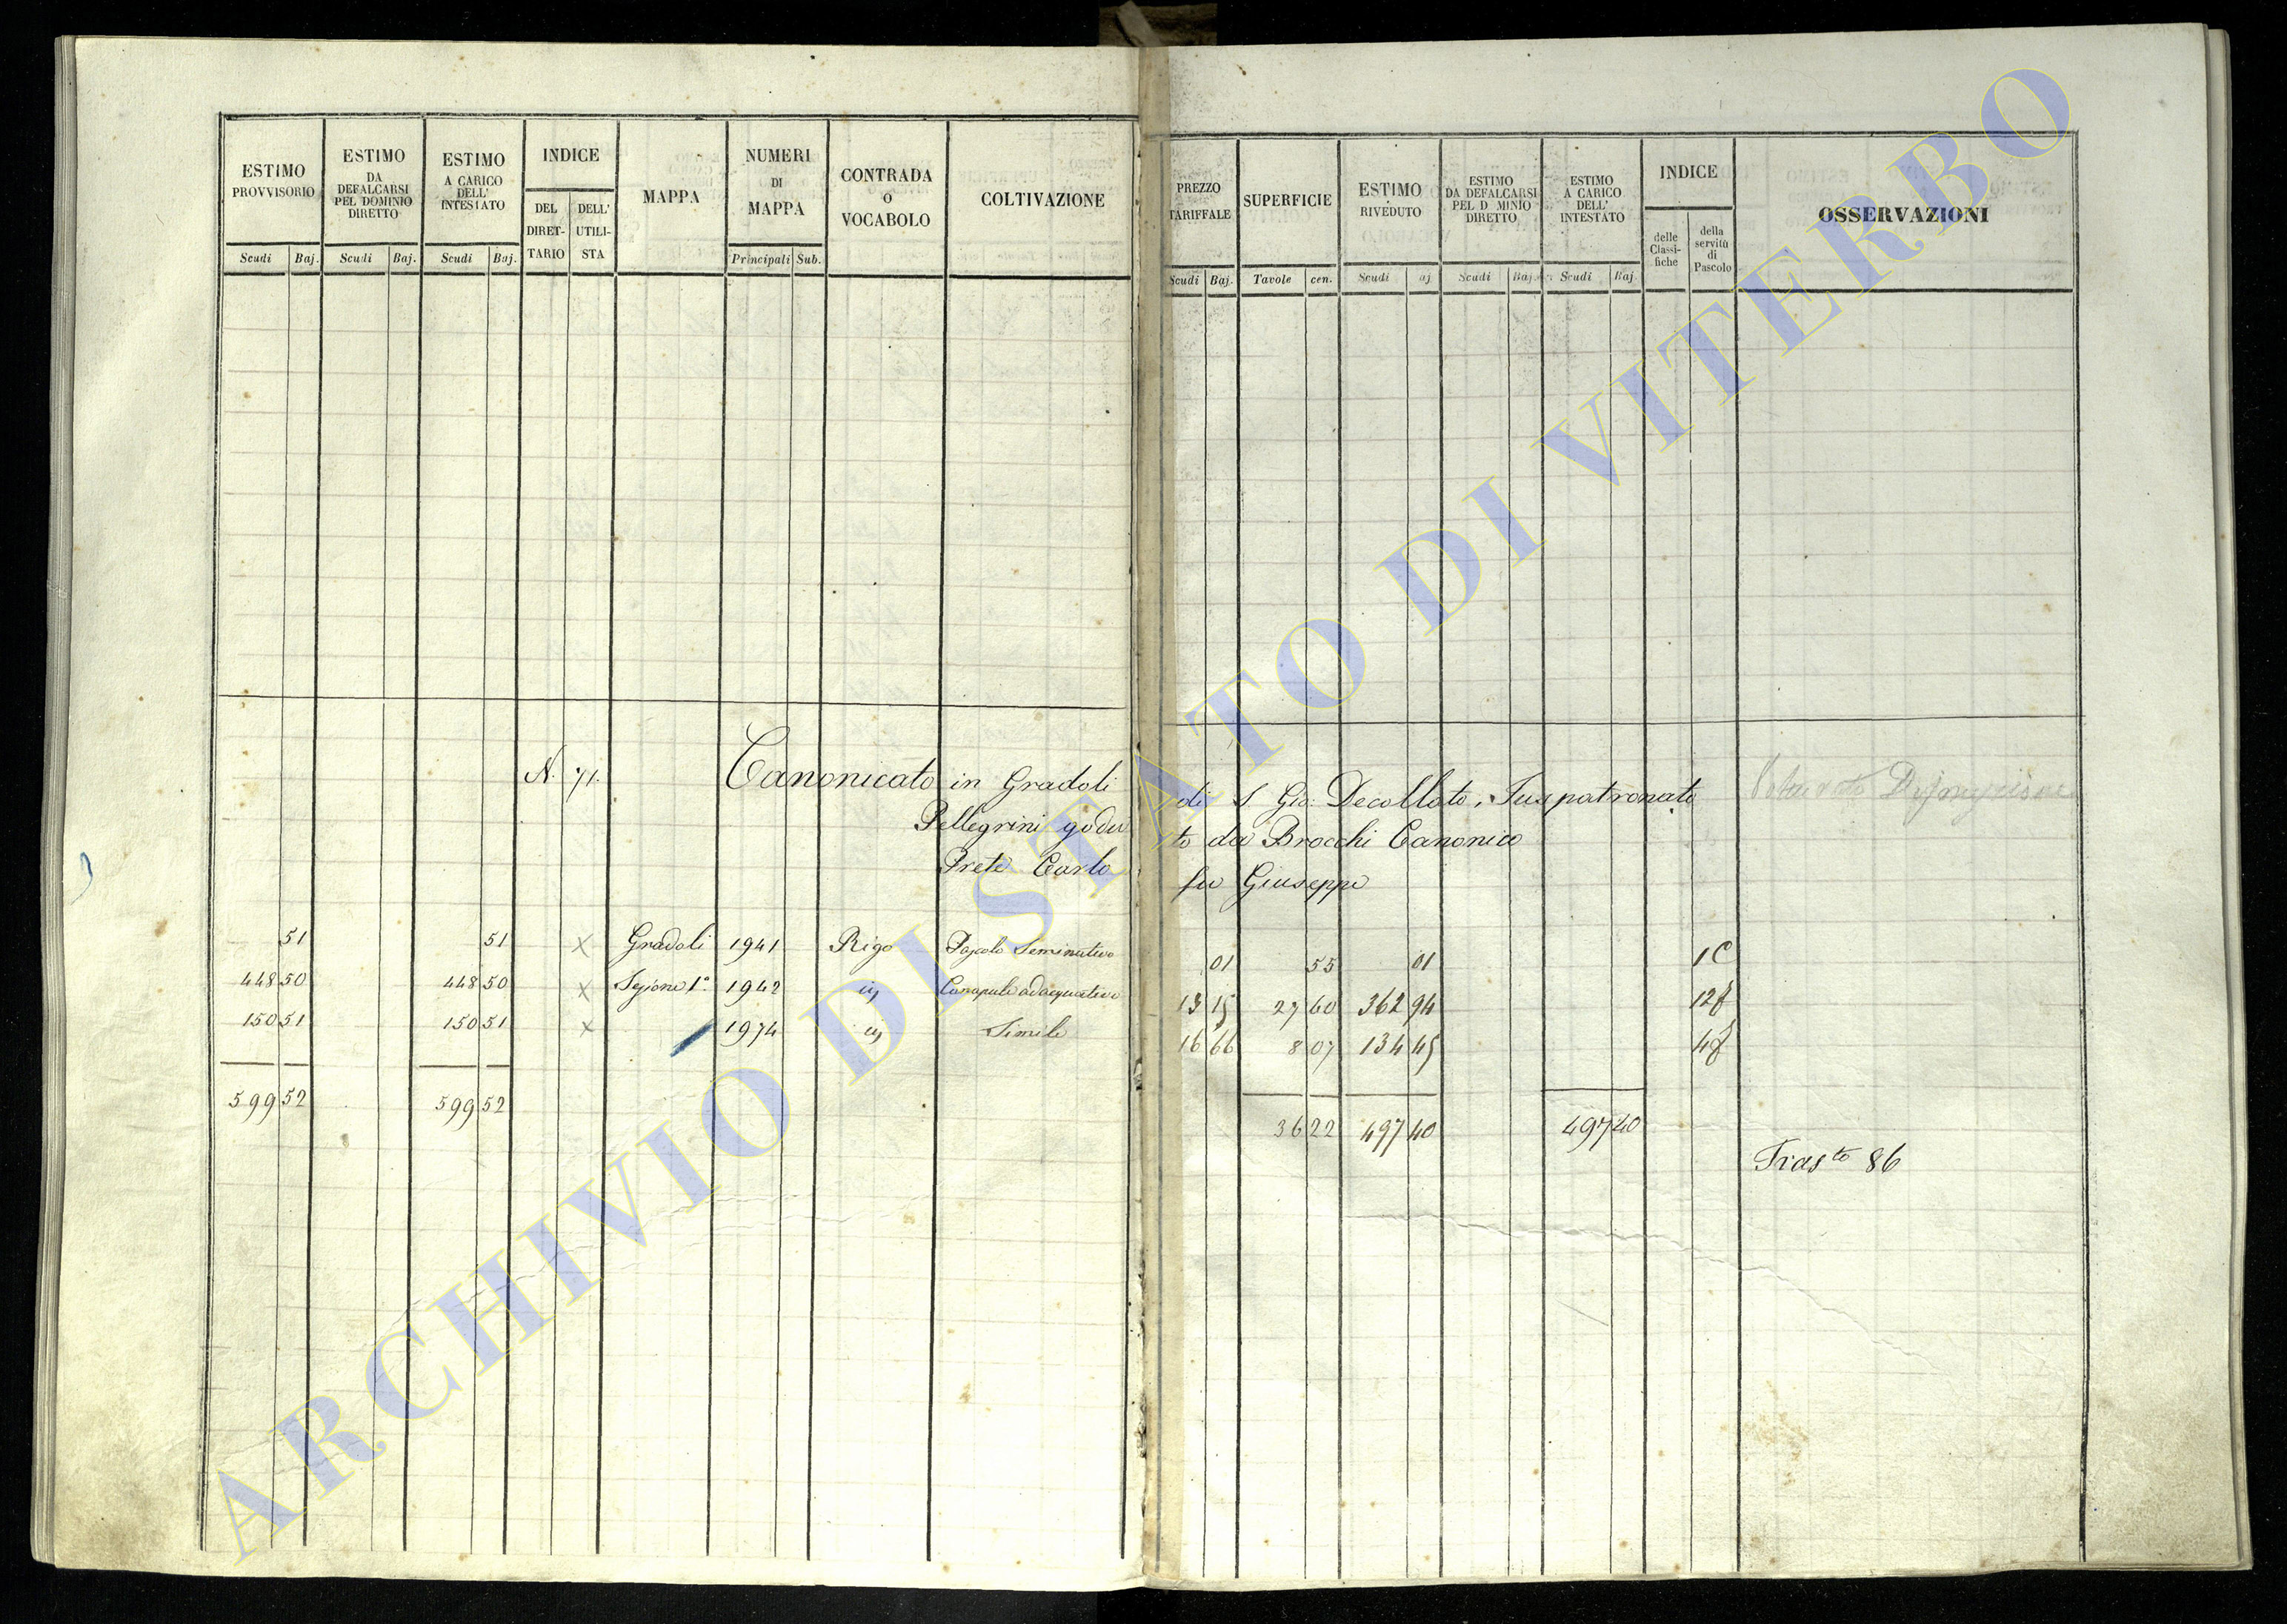 ESTIMO PROVVISORIO
Scudi Baj.
ESTIMO DA DEFALCARSI PEL DOMINIO DIRETTO
Scudi Baj.
ESTIMO A CARICO DELL' INTESTATO
Scudi Baj.
INDICE
DEL DIRET- TARIO
DELL' UTILI- STA
MAPPA
NUMERI DI MAPPA
Principali Sub.
CONTRADA o VOCABOLO
COLTIVAZIONE
PREZZO TARIFFALE
Scudi Baj.
SUPERFICIE
Tavole cen.
ESTIMO RIVEDUTO
Scudi aj
ESTIMO DA DEFALCARSI PEL D MINIO DIRETTO
Scudi Baj.
ESTIMO A CARICO DELL' INTESTATO
Scudi Baj.
INDICE
delle Classi- fiche
della servitù di Pascolo
OSSERVAZIONI
N. 71. Canonicato in Gradoli di S. Gio: Decollato, Juspatronato
Pellegrini goduto da Brocchi Canonico
Prete Carlo fu Giuseppe
51 51 x Gradoli 1941 Rigo Pascolo Seminativo 01 55 01 1C
448 50 448 50 x Sezione 1ª 1942 ivi Canapule adacquativo 13 15 27 60 362 94 12f
150 51 150 51 x 1974 ivi Simile 16 66 8 07 134 45 4f
599 52 599 52 36 22 497 40 497 40
Trasto 86
ARCHIVIO DI STATO DI VITERBO